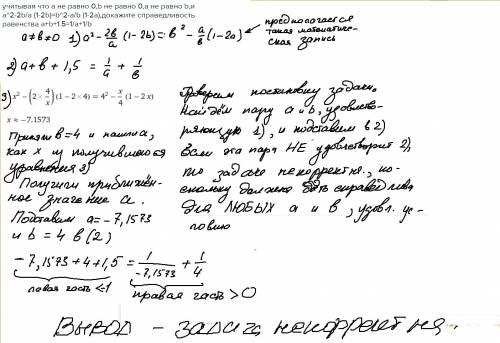 учитывая что а не равно 0,b не равно 0,а не равно b,и
a^2-2b/a (1-2b)=b^2-a/b (1-2a),докажите справедливость
равенства a+b+1.5=1/a+1/b
предполагается такая математическая запись
а≠в≠0 1) a² - 2в/a (1-2в) = в² - a/в (1-2a)
2) a + в + 1,5 = 1/a + 1/в
3) x² - (2 × 4/x) (1 - 2 × 4) = 4² - x/4 (1 - 2 x)
x ≈ -7.1573
Приняли в=4 и нашли а,
как х из получившегося
уравнения 3)
Получили приближён-
ное значение а.
Подставим а= -7,1573
и в = 4 в (2)
-7,1573 + 4 + 1,5 = 1/-7,1573 + 1/4
левая часть <-1 правая часть >0
Проверим постановку задачи.
Найдём пару а и в, удовлетв-
ряющую 1), и подставим в 2)
Если эта пара НЕ удовлетворит 2),
то задача некорректна, по-
скольку должна быть справедлива
для ЛЮБЫХ а и в, удовл. ус-
ловию
Вывод - задача некорректна.